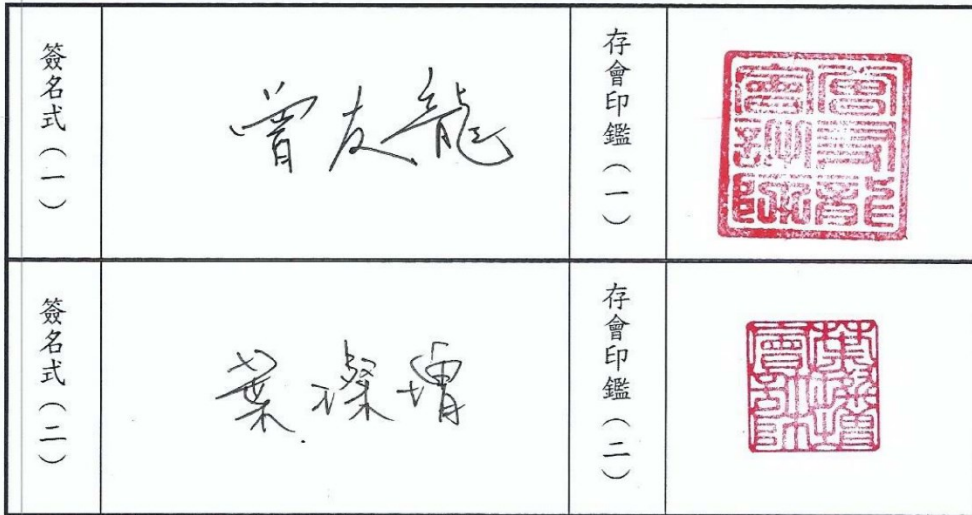 簽名式（一）
曾友龍
存會印鑑（一）
曾友龍
會計師
簽名式（二）
存會印鑑（二）
會計師